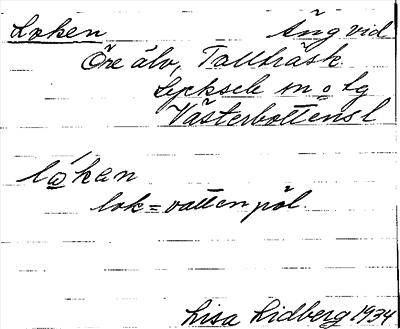 Loken Äng vid
Öre älv, Tallträsk
Lycksele sn o lg
Västerbottens l
lákan
lok = vatten pöl.
Lisa Lidberg 1934